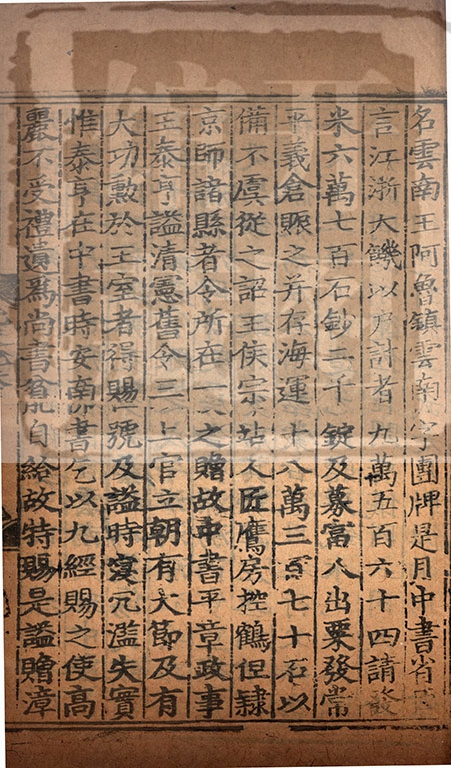 名雲南王阿魯鎮雲南字團牌是月中書省
言江浙大饑以戶計者九萬五百六十四請發
米六萬七百石鈔二千錠及募富人出粟發常
平義倉賑之并存海運十八萬三百七十石以
備不虞從之詔王侯宗站人匠鷹房控鶴但隸
京師諸縣者令所在一之贈故中書平章政事
王泰亨謚清憲舊令三上官立朝有大節及有
大功勲於王室者得賜號及謚時寖冗濫失實
惟泰亨在中書時安南書乞以九經賜之使高
麗不受禮遺爲尚書貧自給故特賜是謚贈漳